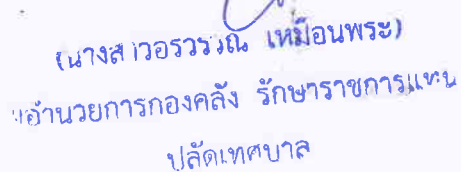 (นางสาวอรวรรณ เหมือนพระ)
ผู้อำนวยการกองคลัง รักษาราชการแทน
ปลัดเทศบาล